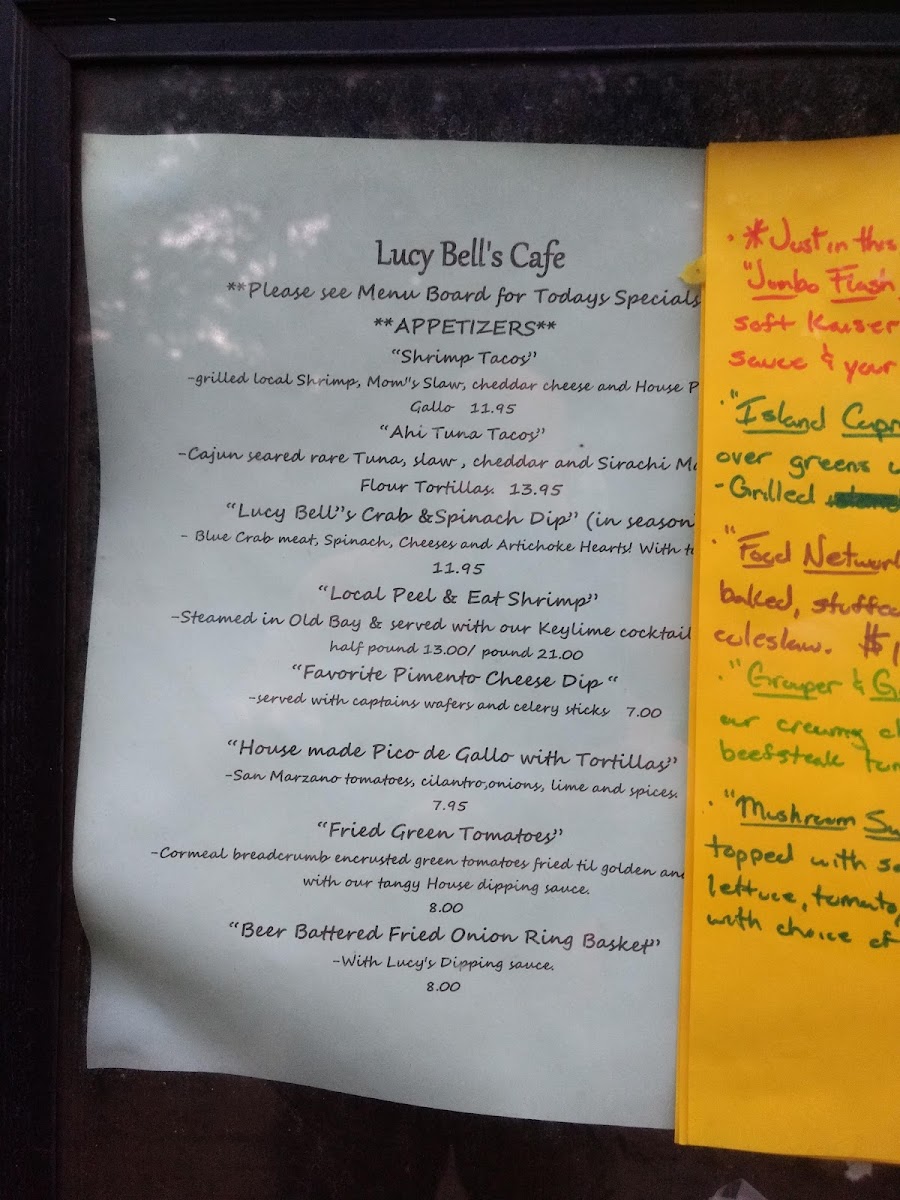 Lucy Bell's Cafe
**Please see Menu Board for Todays Specials
**APPETIZERS**
“Shrimp Tacos”
-grilled local Shrimp, Mom"s Slaw, cheddar cheese and House P
Gallo 11.95
“Ahi Tuna Tacos”
-Cajun seared rare Tuna, slaw , cheddar and Sirachi M
Flour Tortillas. 13.95
“Lucy Bell”s Crab &Spinach Dip” (in season)
- Blue Crab meat, Spinach, Cheeses and Artichoke Hearts! With t
11.95
“Local Peel & Eat Shrimp”
-Steamed in Old Bay & served with our Keylime cocktail
half pound 13.00/ pound 21.00
“Favorite Pimento Cheese Dip “
-served with captains wafers and celery sticks 7.00
“House made Pico de Gallo with Tortillas”
-San Marzano tomatoes, cilantro,onions, lime and spices.
7.95
“Fried Green Tomatoes”
-Cormeal breadcrumb encrusted green tomatoes fried til golden and
with our tangy House dipping sauce.
8.00
“Beer Battered Fried Onion Ring Basket”
-With Lucy's Dipping sauce.
8.00
· * Just in this
"Jumbo Flash
soft Kaiser
sauce & your
· "Island Capr
over greens
- Grilled
· "Food Network
baked, stuffed
coleslaw. $1
· "Grouper & G
our creamy ch
beefsteak tom
· "Mushroom Sw
topped with s
lettuce, tomato,
with choice of